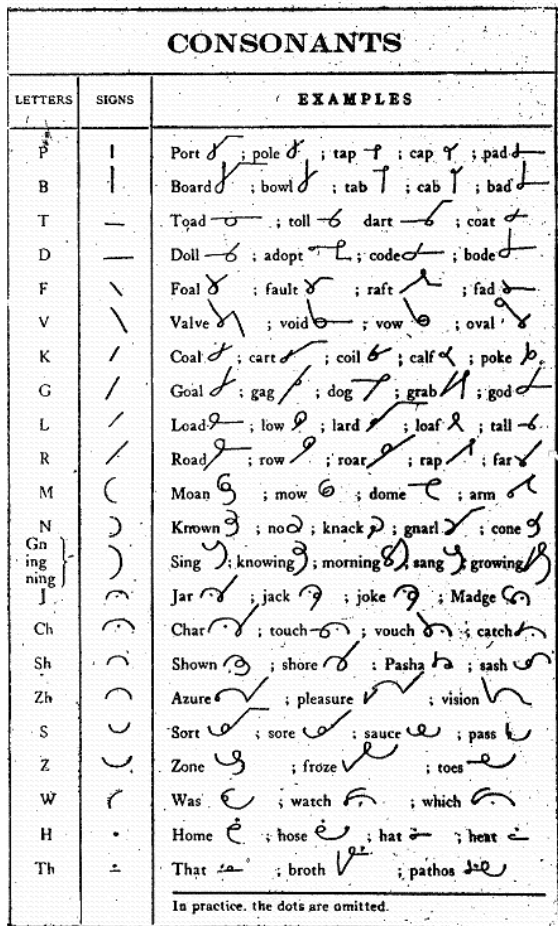 CONSONANTS
LETTERS SIGNS EXAMPLES
P Port ; pole ; tap ; cap ; pad
B Board ; bowl ; tab ; cab ; bad
T Toad ; toll dart ; coat
D Doll ; adopt ; code ; bode
F Foal ; fault ; raft ; fad
V Valve ; void ; vow ; oval
K Coal ; cart ; coil ; calf ; poke
G Goal ; gag ; dog ; grab ; god
L Load ; low ; lard ; loaf ; tall
R Road ; row ; roar ; rap ; far
M Moan ; mow ; dome ; arm
N Known ; no ; knack ; gnarl ; cone
Gn
ing Sing ; knowing ; morning ; sang ; growing
ning
J Jar ; jack ; joke ; Madge
Ch Char ; touch ; vouch ; catch
Sh Shown ; shore ; Pasha ; sash
Zh Azure ; pleasure ; vision
S Sort ; sore ; sauce ; pass
Z Zone ; froze ; toes
W Was ; watch ; which
H Home ; hose ; hat ; heat
Th That ; broth ; pathos
In practice. the dots are omitted.